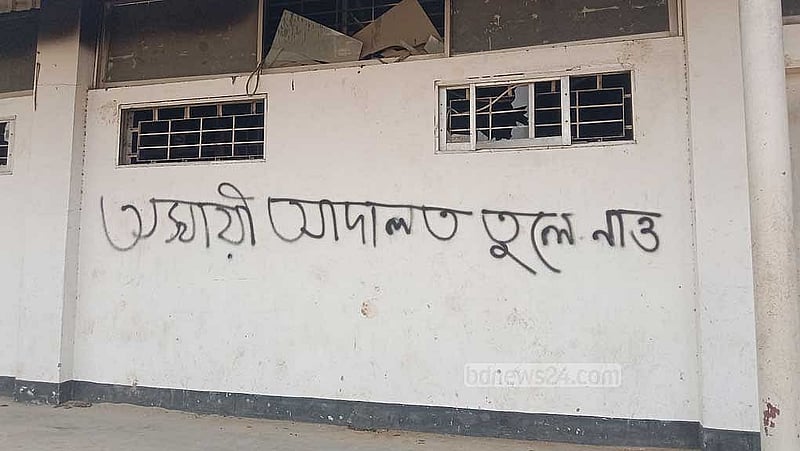 অস্থায়ী আদালত তুলে নাও
bdnews24.com